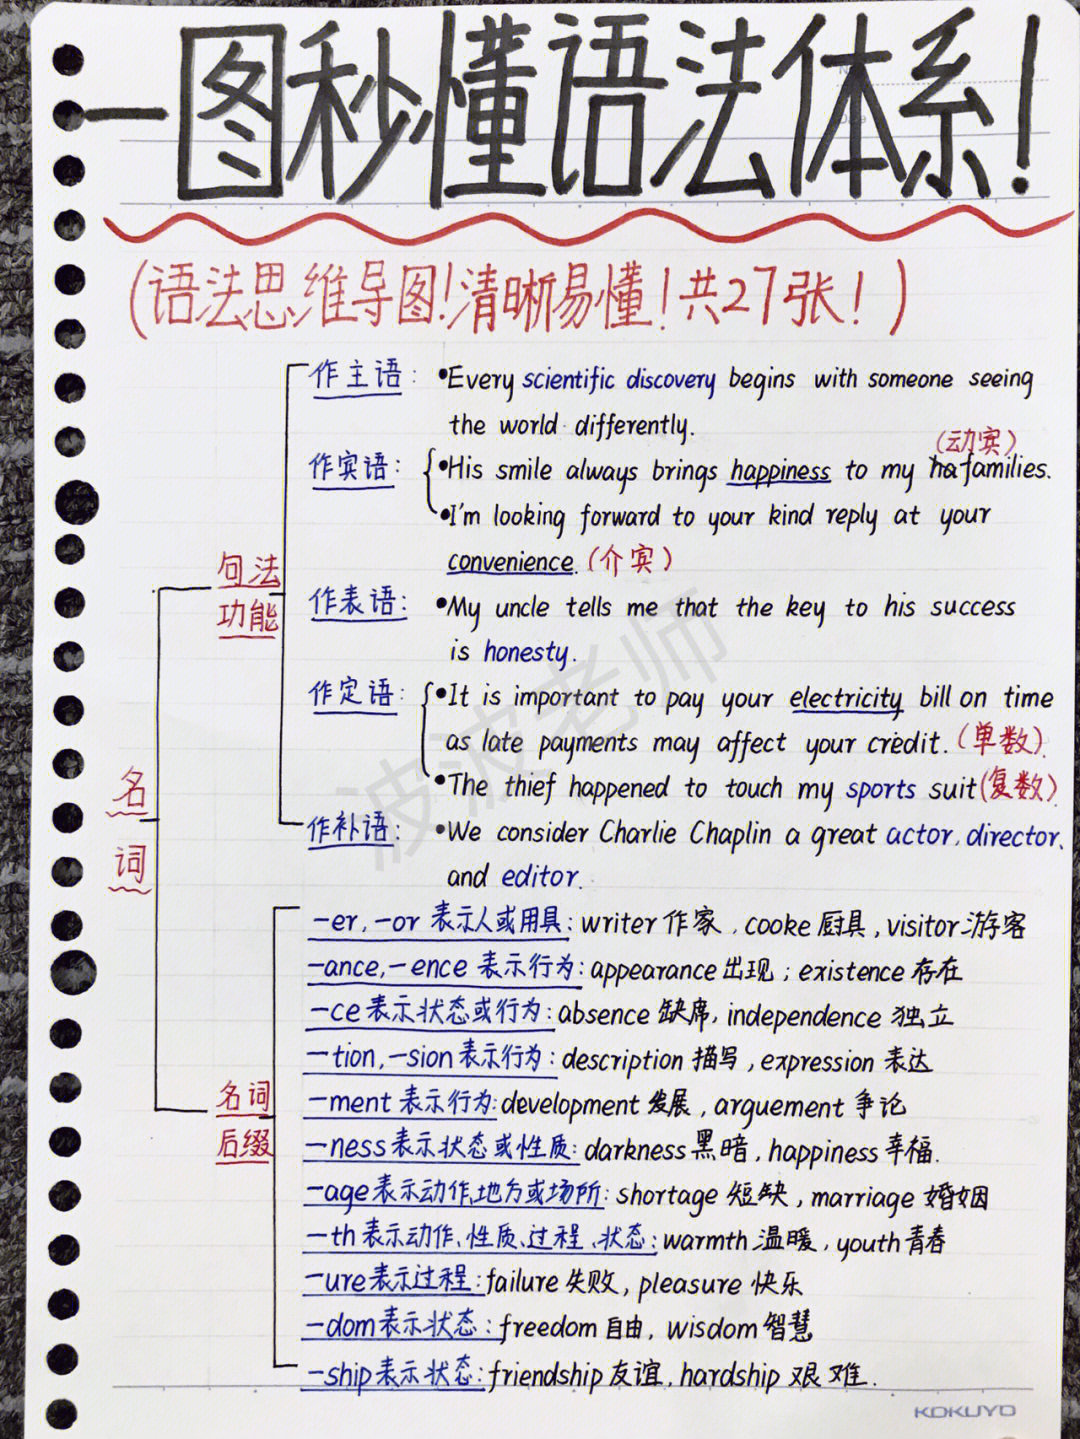 一图秒懂语法体系!
(语法思维导图!清晰易懂!共27张!)
名词
句法功能
作主语: •Every scientific discovery begins with someone seeing
the world differently.
(动宾)
作宾语: •His smile always brings happiness to my families.
•I'm looking forward to your kind reply at your
convenience. (介宾)
作表语: •My uncle tells me that the key to his success
is honesty.
作定语: •It is important to pay your electricity bill on time
as late payments may affect your credit. (单数)
•The thief happened to touch my sports suit (复数)
作补语: •We consider Charlie Chaplin a great actor, director,
and editor.
名词后缀
-er, -or 表示人或用具: writer 作家, cooke 厨具, visitor 游客
-ance, -ence 表示行为: appearance 出现; existence 存在
-ce 表示状态或行为: absence 缺席, independence 独立
-tion, -sion 表示行为: description 描写, expression 表达
-ment 表示行为: development 发展, arguement 争论
-ness 表示状态或性质: darkness 黑暗, happiness 幸福.
-age 表示动作,地方或场所: shortage 短缺, marriage 婚姻
-th 表示动作、性质、过程、状态: warmth 温暖, youth 青春
-ure 表示过程: failure 失败, pleasure 快乐
-dom 表示状态: freedom 自由, wisdom 智慧
-ship 表示状态: friendship 友谊, hardship 艰难.
波波老师
KOKUYO